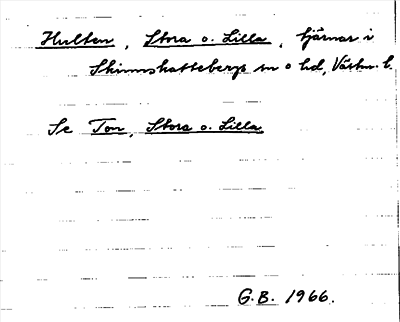 Hulten, Stora o. Lilla, tjärnar i
Skinnskattebergs sn o hd, Västm. l.
Se Ton, Stora o. Lilla
G.B. 1966.